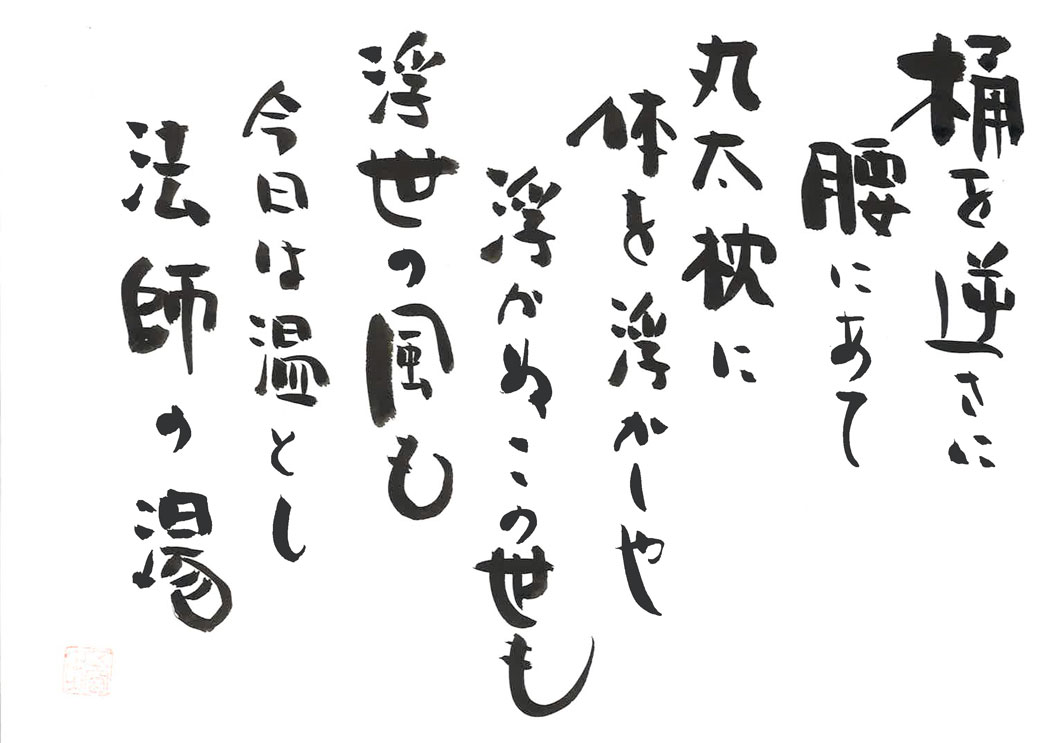 桶を逆さに
腰にあて
丸太枕に
体を浮かしや
浮かぬこの世も
浮世の風も
今日は温とし
法師の湯